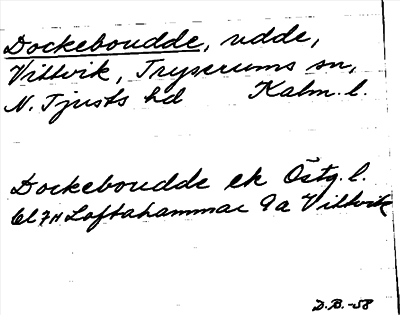 Dockeboudde, udde,
Vittvik, Tryserums sn,
N. Tjusts hd Kalm. l.
Dockeboudde ek Östg. l.
bl 7H Loftahammar 9a Vittvik
D.B. -58